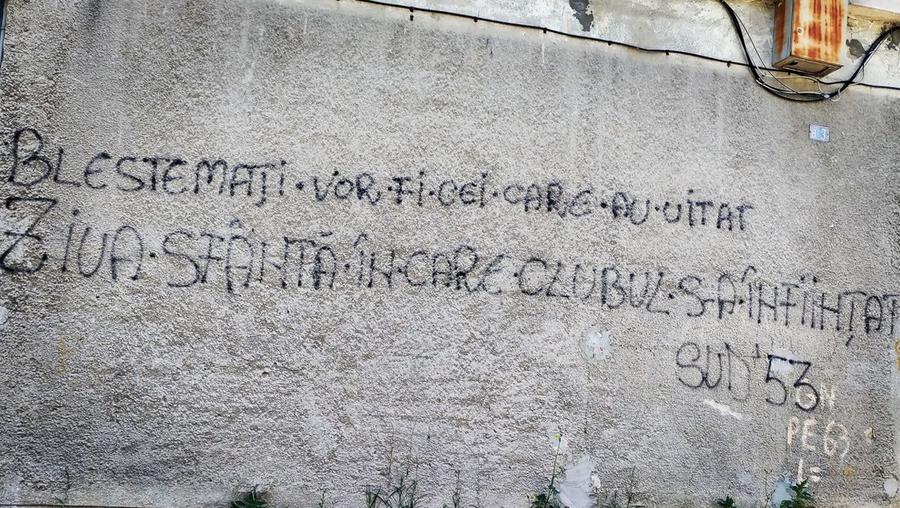 BLESTEMAȚI·VOR·FI·CEI·CARE·AU·UITAT
ZIUA·SFÂNTĂ·ÎN·CARE·CLUBUL·S-A·ÎNFIINȚAT
SUD'53
PE 63